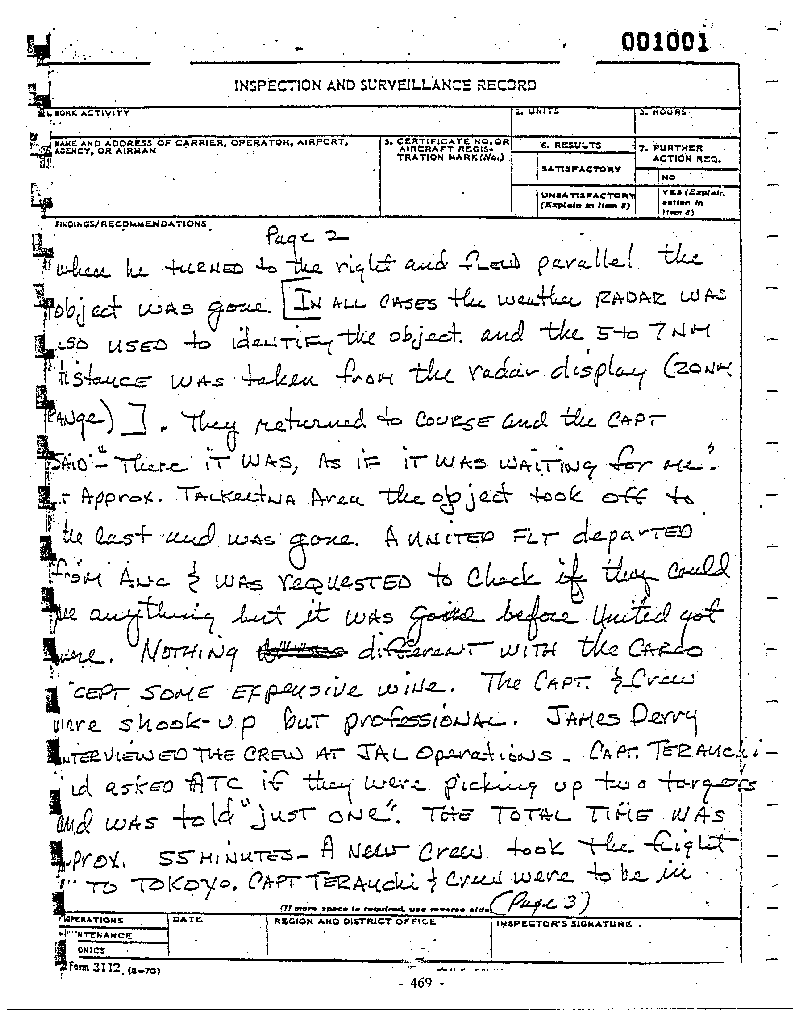 001001
INSPECTION AND SURVEILLANCE RECORD
1. WORK ACTIVITY
2. UNITS
3. HOURS
NAME AND ADDRESS OF CARRIER, OPERATOR, AIRPORT,
AGENCY, OR AIRMAN
5. CERTIFICATE NO. OR
AIRCRAFT REGIS-
TRATION MARK (No.)
6. RESULTS
SATISFACTORY
UNSATISFACTORY
(Explain in Item 8)
7. FURTHER
ACTION REQ.
NO
YES (Explain
action in
Item 8)
FINDINGS/RECOMMENDATIONS
Page 2
when he TURNED to the right and flew parallel the
object WAS gone. [IN ALL CASES the weather RADAR WAS
LSO USED to identify the object and the 5 to 7 NM
distance WAS taken from the radar display (20NM
RANge)]. They returned to COURSE and the CAPT
SAID "- There IT WAS, AS IF IT WAS WAITING for me".
Approx. TALKEETNA Area the object took off to
the east and WAS gone. A UNITED FLT departed
from ANC & WAS requested to check if they could
anything but it WAS gone before United got
NOTHING different WITH the CARGO
CEPT SOME EXPENSIVE wine. The CAPT. & Crew
were shook-up but professional. JAMES Derry
INTERVIEWED THE CREW AT JAL Operations - CAPT. TERAUCHi
asked ATC if they were picking up two targets
and WAS told "just ONE". THE TOTAL TIME WAS
prox. 55 MINUTES - A New Crew took the flight
TO TOKOYO. CAPT TERAUChi & Crew were to be in
(If more space is required, use reverse side)
(Page 3)
OPERATIONS
NTENANCE
ONICS
DATE
REGION AND DISTRICT OFFICE
INSPECTOR'S SIGNATURE
Form 3112 (8-70)
- 469 -